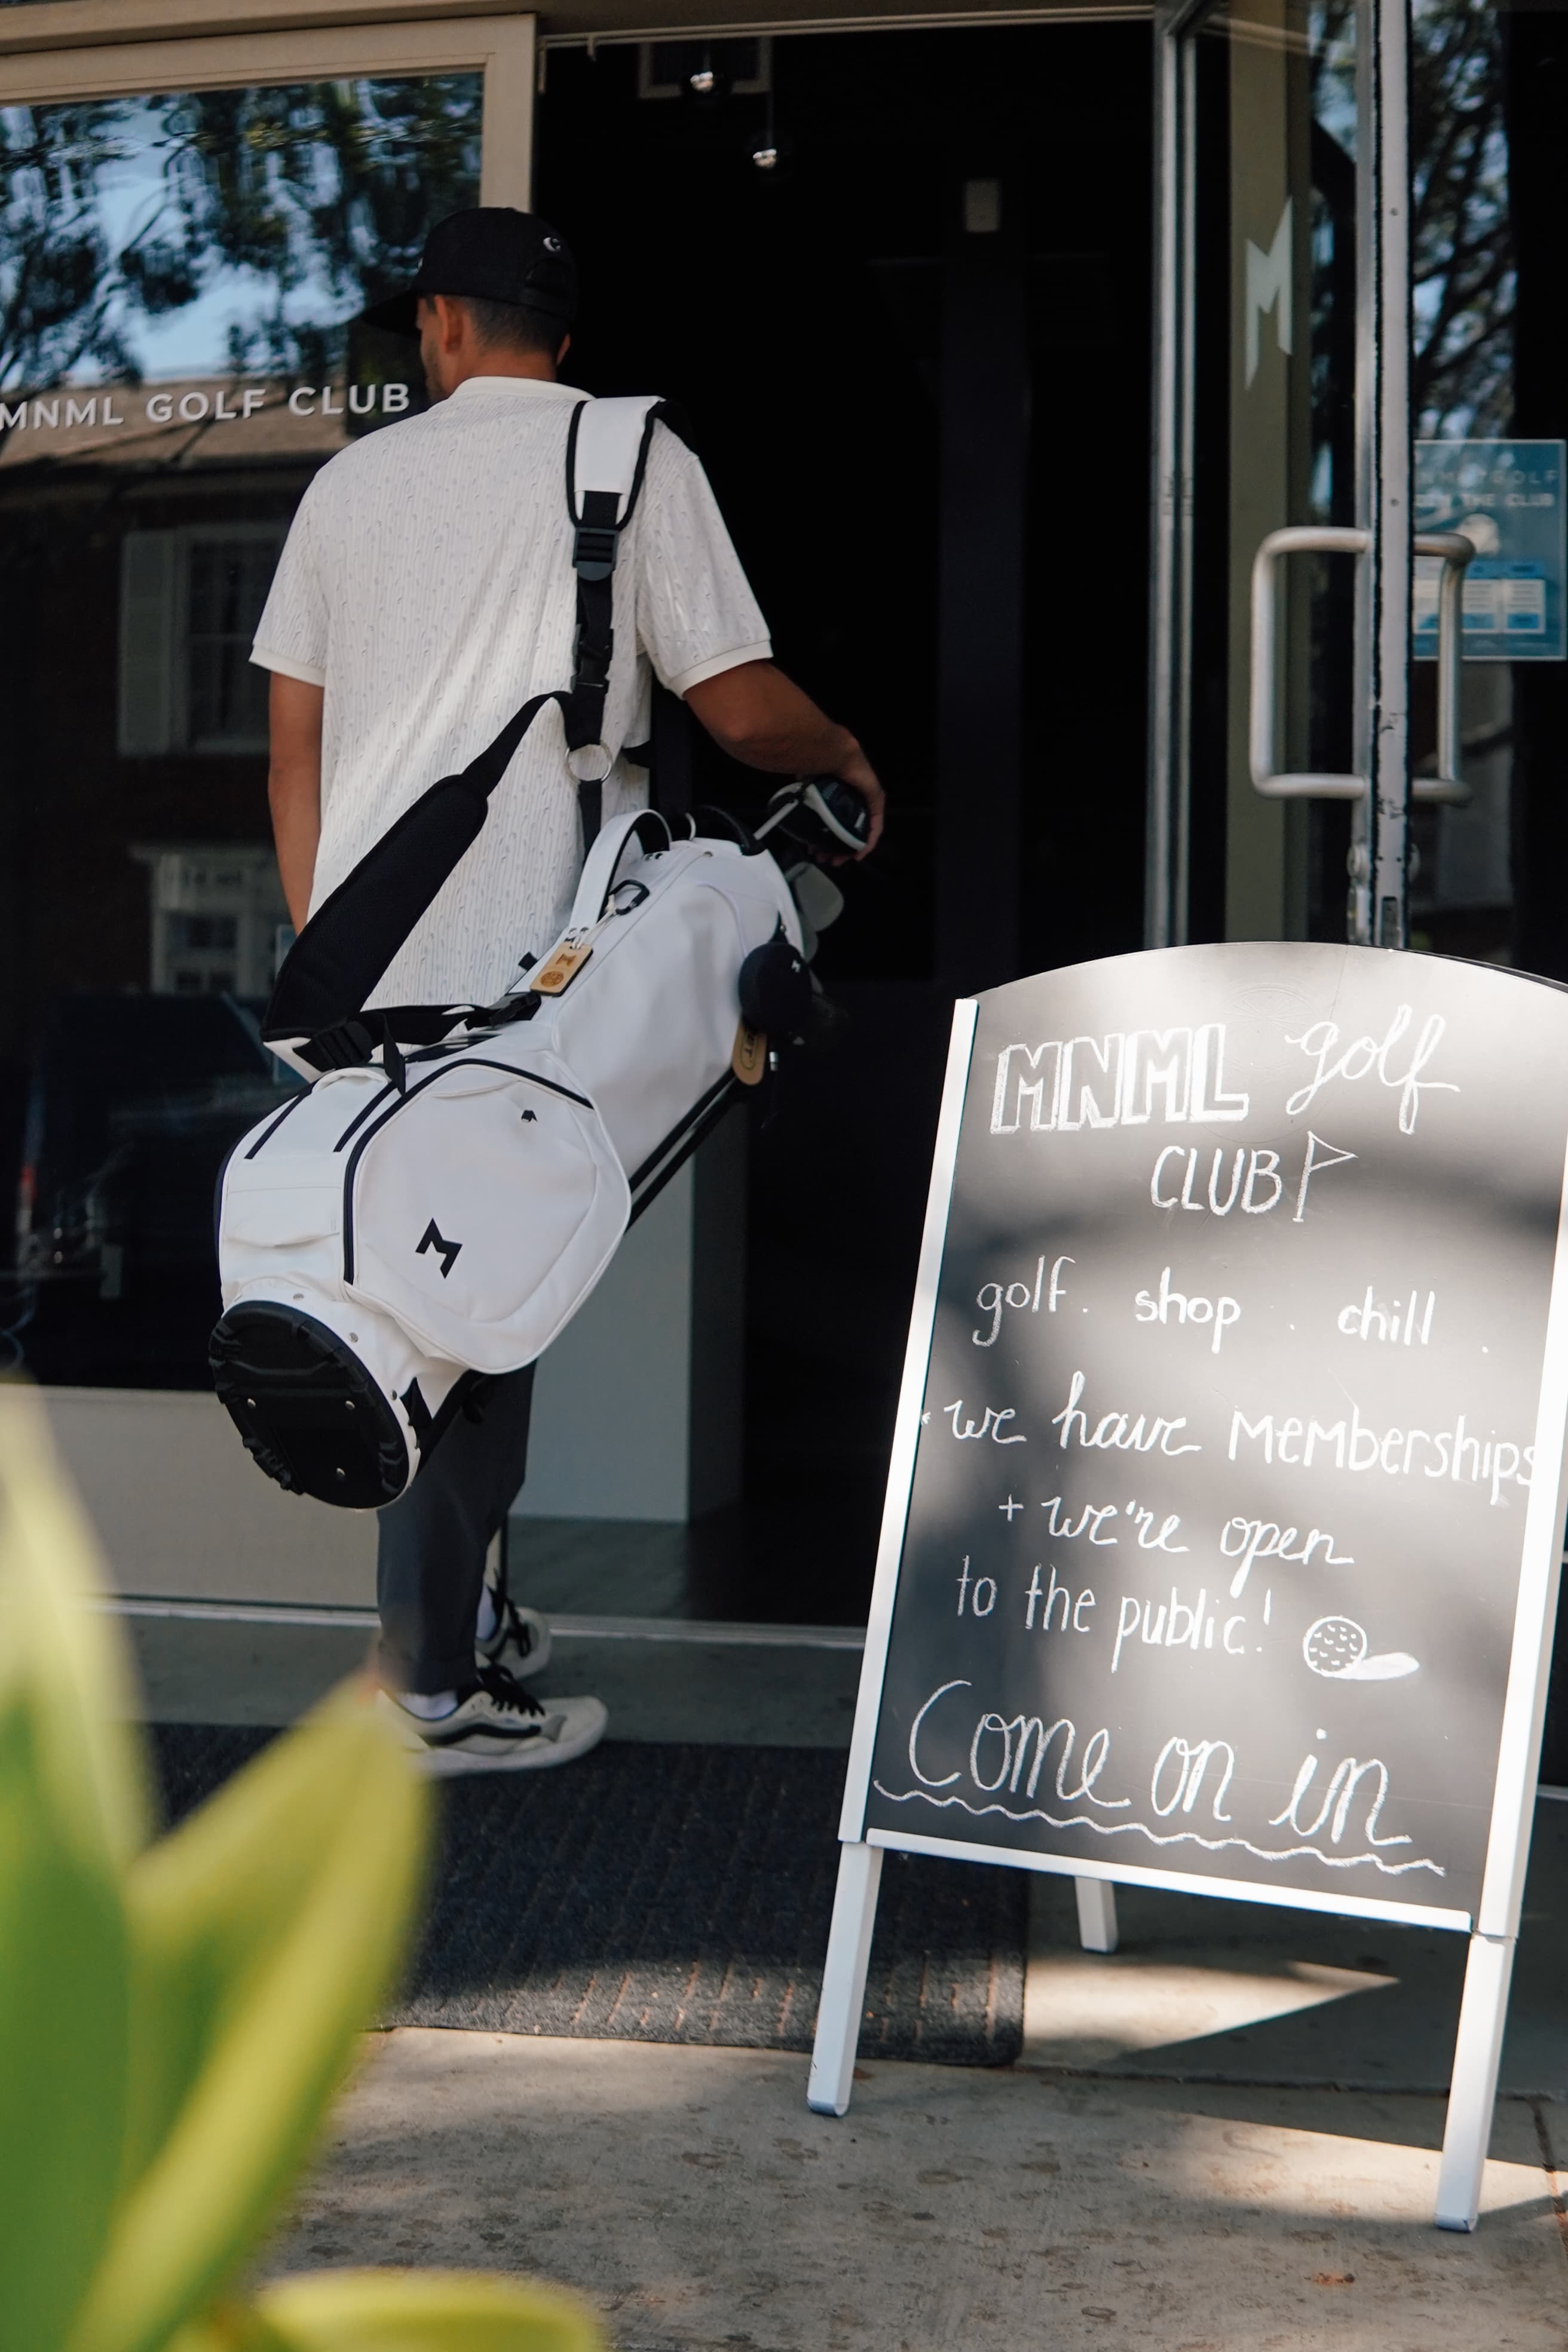 MNML GOLF CLUB
M
THE CLUB
MNML golf
CLUB
golf. shop . chill .
we have memberships
+ we're open
to the public!
Come on in